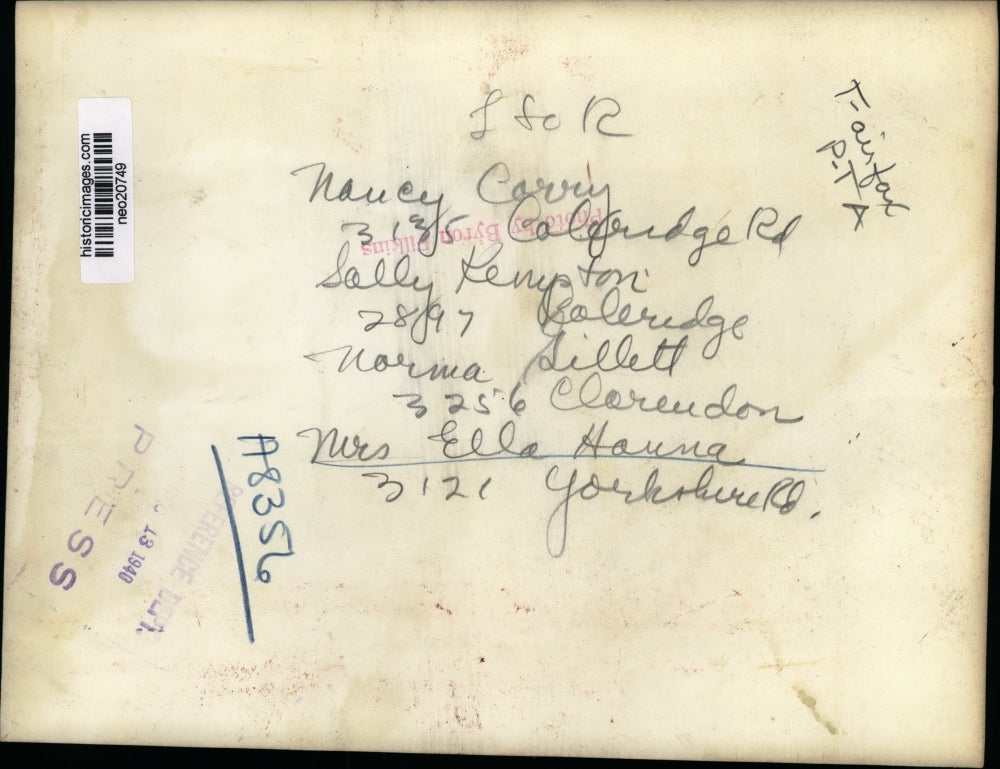 L to R
Nancy Corry
3135 Coleridge Rd
Sally Kempton
2897 Coleridge
Norma Gillett
3256 Clarendon
Mrs Ella Hanna
3121 Yorkshire Rd.
Fairfax
P.T.A
historicimages.com
neo20749
Photo by Byron Filkins
A8356
PRESS
13 1940
REFERENCE DEPT.